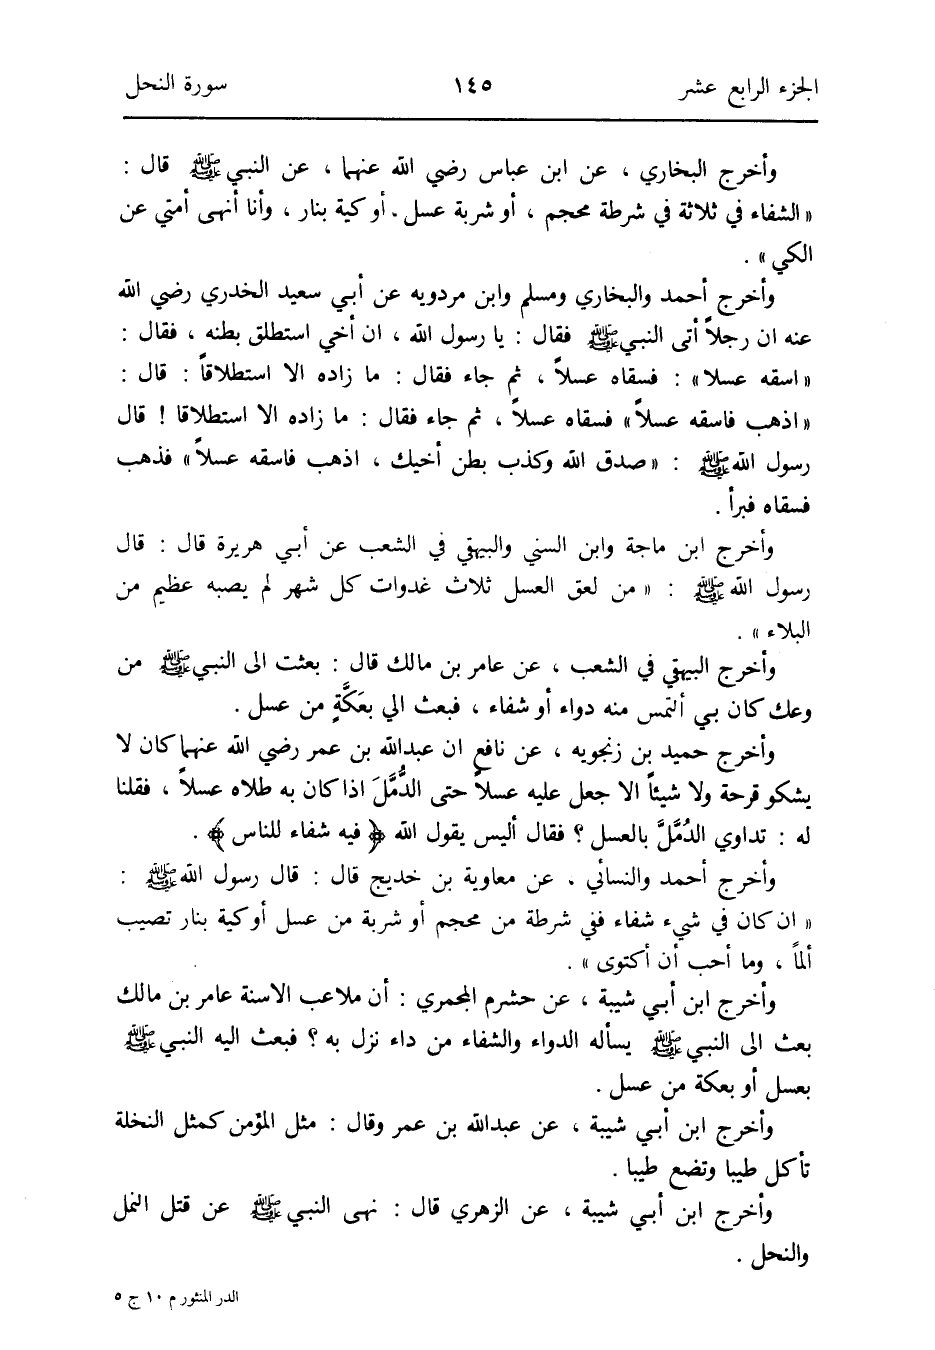 الجزء الرابع عشر ١٤٥ سورة النحل
وأخرج البخاري ، عن ابن عباس رضي الله عنهما ، عن النبي ﷺ قال :
« الشفاء في ثلاثة في شرطة محجم ، أو شربة عسل . أو كية بنار ، وأنا أنهى أمتي عن
الكي » .
وأخرج أحمد والبخاري ومسلم وابن مردويه عن أبي سعيد الخدري رضي الله
عنه ان رجلاً أتى النبي ﷺ فقال : يا رسول الله ، ان أخي استطلق بطنه ، فقال :
« اسقه عسلا » : فسقاه عسلاً ، ثم جاء فقال : ما زاده الا استطلاقاً : قال :
« اذهب فاسقه عسلاً » فسقاه عسلاً ، ثم جاء فقال : ما زاده الا استطلاقا ! قال
رسول الله ﷺ : « صدق الله وكذب بطن أخيك ، اذهب فاسقه عسلاً » فذهب
فسقاه فبرأ .
وأخرج ابن ماجة وابن السني والبيهقي في الشعب عن أبي هريرة قال : قال
رسول الله ﷺ : « من لعق العسل ثلاث غدوات كل شهر لم يصبه عظيم من
البلاء » .
وأخرج البيهقي في الشعب ، عن عامر بن مالك قال : بعثت الى النبي ﷺ من
وعك كان بي ألتمس منه دواء أو شفاء ، فبعث الي بعَكَّةٍ من عسل .
وأخرج حميد بن زنجويه ، عن نافع ان عبدالله بن عمر رضي الله عنهما كان لا
يشكو قرحة ولا شيئاً الا جعل عليه عسلاً حتى الدُّمَّلَ اذا كان به طلاه عسلاً ، فقلنا
له : تداوي الدُمَّلَّ بالعسل ؟ فقال أليس يقول الله ﴿ فيه شفاء للناس ﴾ .
وأخرج أحمد والنسائي . عن معاوية بن خديج قال : قال رسول الله ﷺ :
« ان كان في شيء شفاء ففي شرطة من محجم أو شربة من عسل أو كية بنار تصيب
ألماً ، وما أحب أن أكتوى » .
وأخرج ابن أبي شيبة ، عن حشرم المجمري : أن ملاعب الاسنة عامر بن مالك
بعث الى النبي ﷺ يسأله الدواء والشفاء من داء نزل به ؟ فبعث اليه النبي ﷺ
بعسل أو بعكة من عسل .
وأخرج ابن أبي شيبة ، عن عبدالله بن عمر وقال : مثل المؤمن كمثل النخلة
تأكل طيبا وتضع طيبا .
وأخرج ابن أبي شيبة ، عن الزهري قال : نهى النبي ﷺ عن قتل النمل
والنحل .
الدر المنثور م ١٠ ج ٥